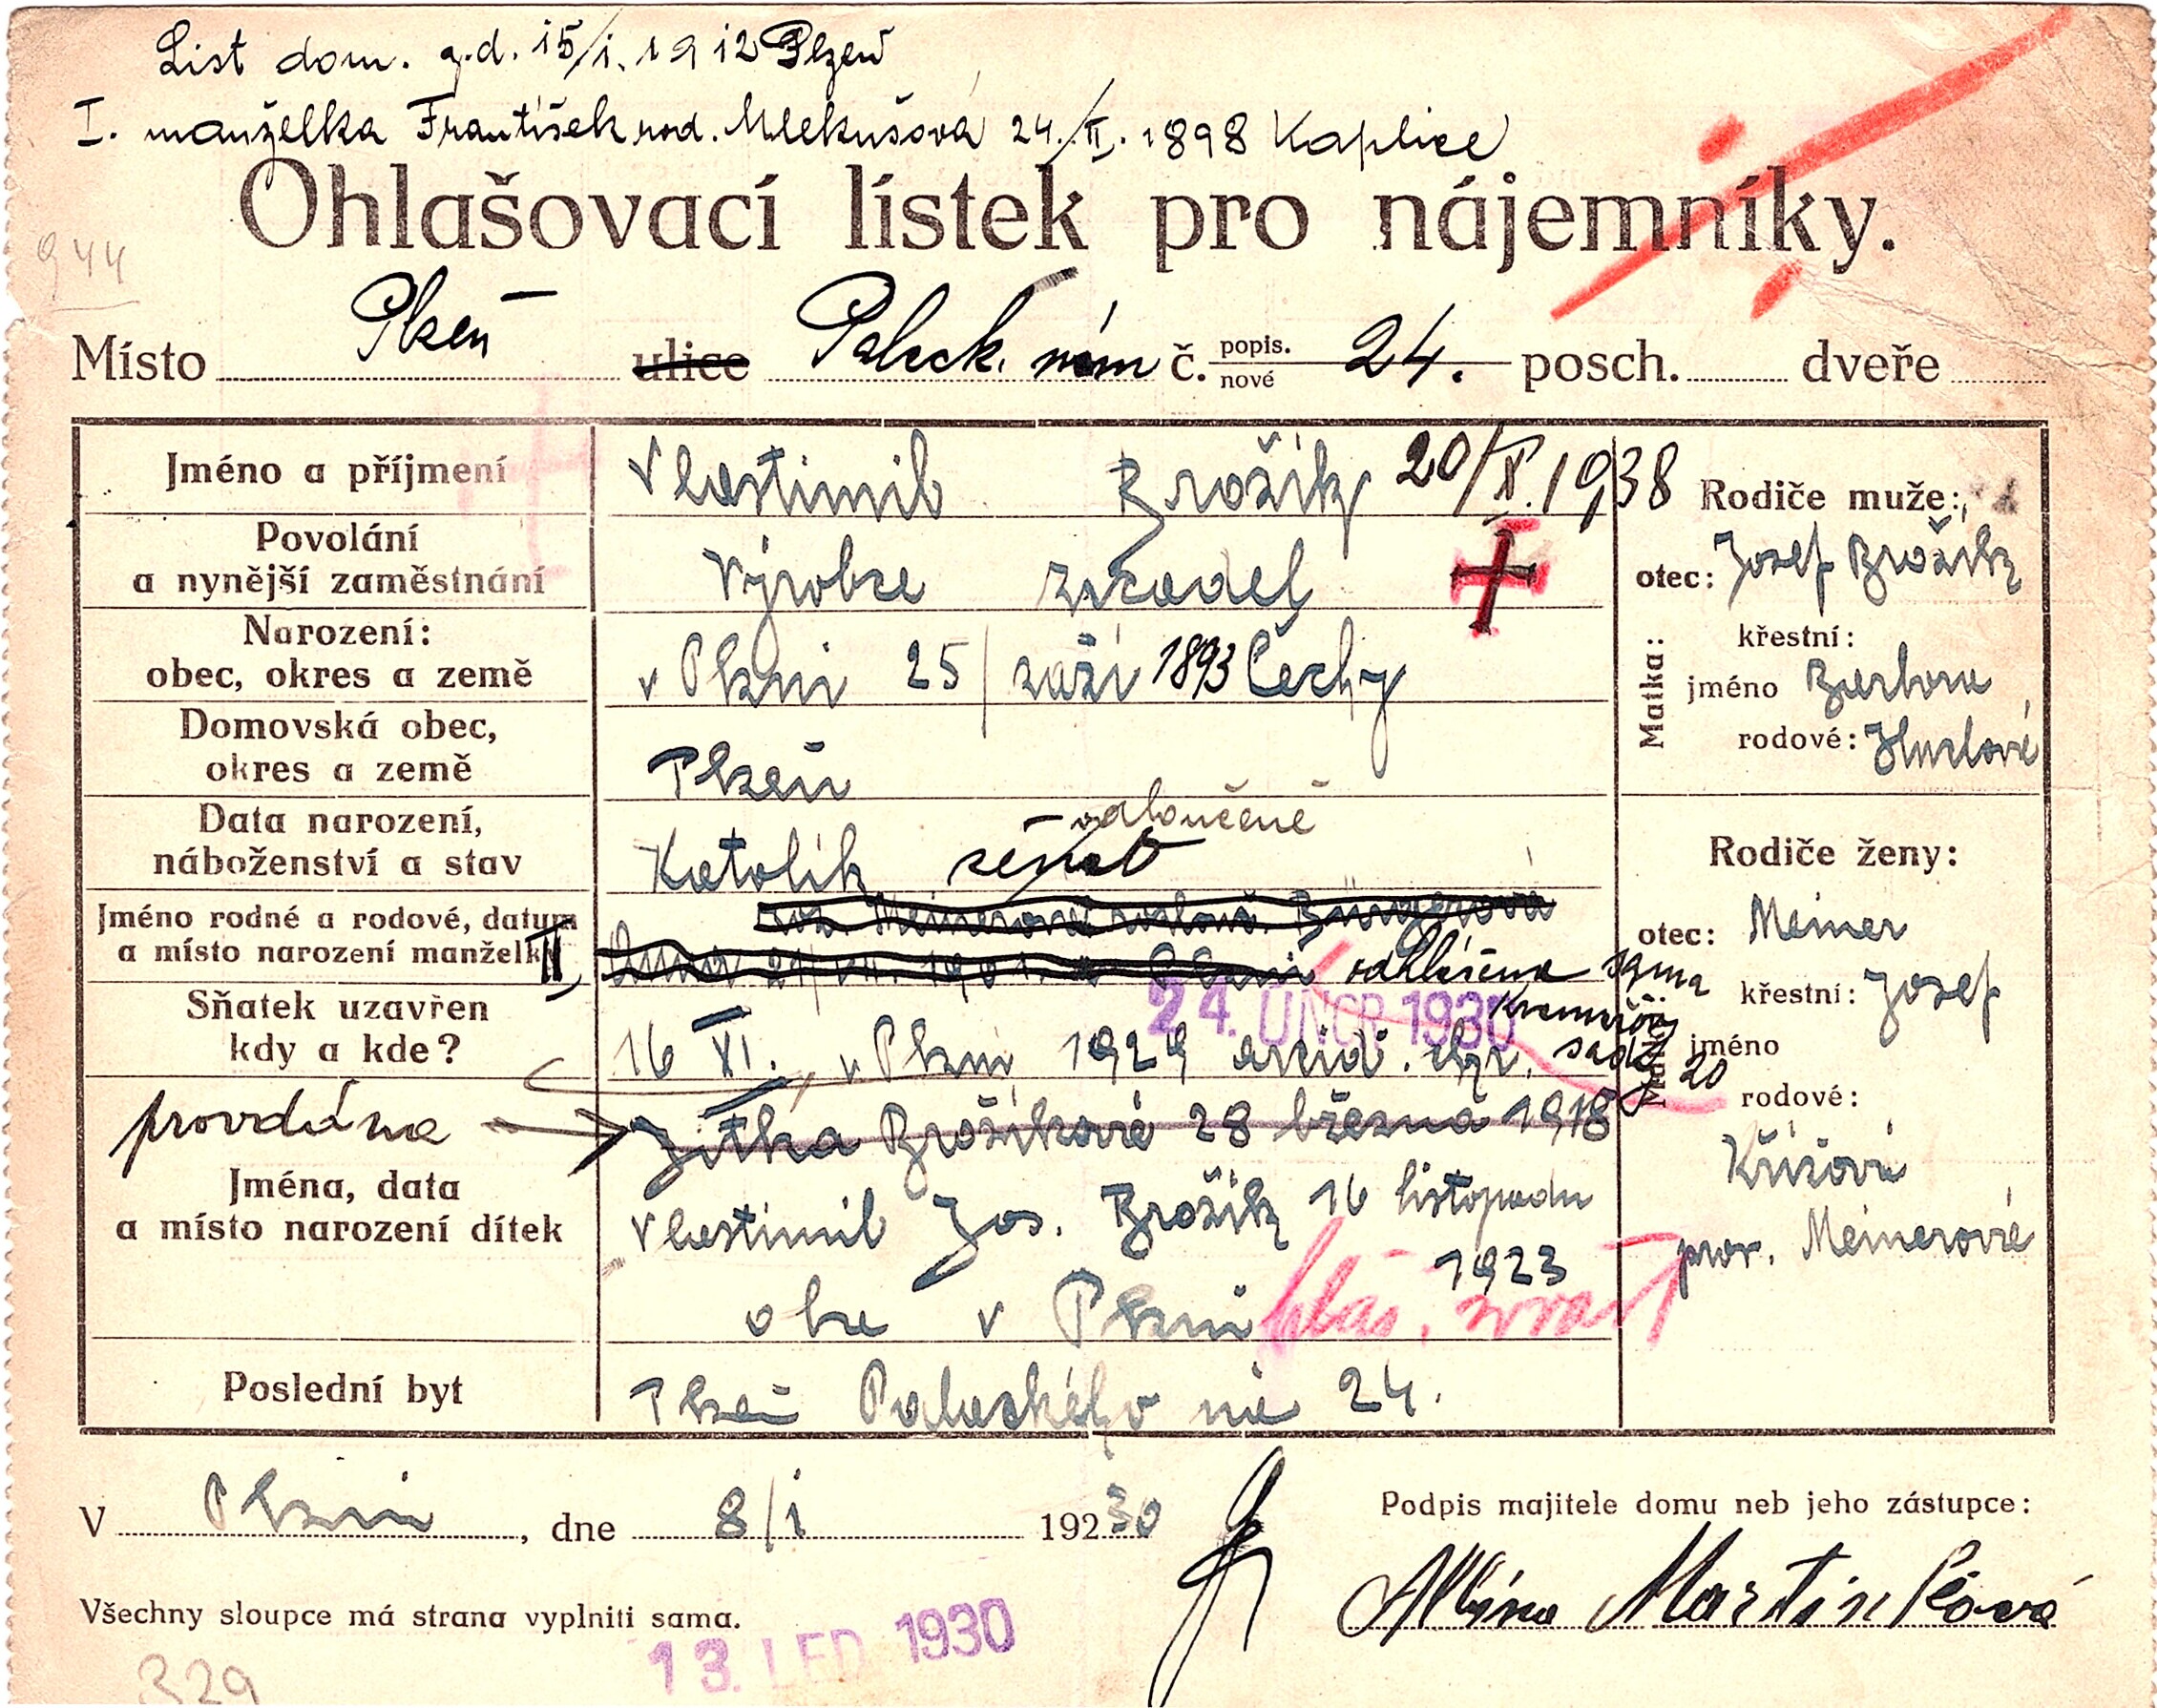 List dom. z. d. 15/I. 1912 Plzeň
I. manželka Františka rod. Mlekušová 24./II. 1898 Kaplice
Ohlašovací lístek pro nájemníky.
944
Místo Plzeň ulice Palack. nám č. popis. nové 24. posch. dveře
Jméno a příjmení Vlastimil Brožík 20/X. 1938
Povolání
a nynější zaměstnání Výrobce zrcadel
Narození:
obec, okres a země v Plzni 25/ září 1893 Čechy
Domovská obec,
okres a země Plzeň
odloučené
Data narození,
náboženství a stav Katolík ženat
Jméno rodné a rodové, datum
a místo narození manželky II. Meinerová
odhlášena sama
24. ÚNOR 1930
sady 20
Sňatek uzavřen
kdy a kde? 16 XI. v Plzni 1929
provdána Jitka Brožíková 28 března 1918
Jména, data
a místo narození dítek Vlastimil Jos. Brožík 16 listopadu
1923
obe v Plzni hlás.
Poslední byt Plzeň Palackého 24.
Rodiče muže:
otec: Josef Brožík
Matka:
křestní:
jméno Barbora
rodové:
Rodiče ženy:
otec: Meiner
křestní: Josef
jméno
rodové:
Křížová
prov. Meinerová
V Plzni, dne 8/I 192 30
Podpis majitele domu neb jeho zástupce:
Albína
Všechny sloupce má strana vyplniti sama.
13. LED. 1930
329